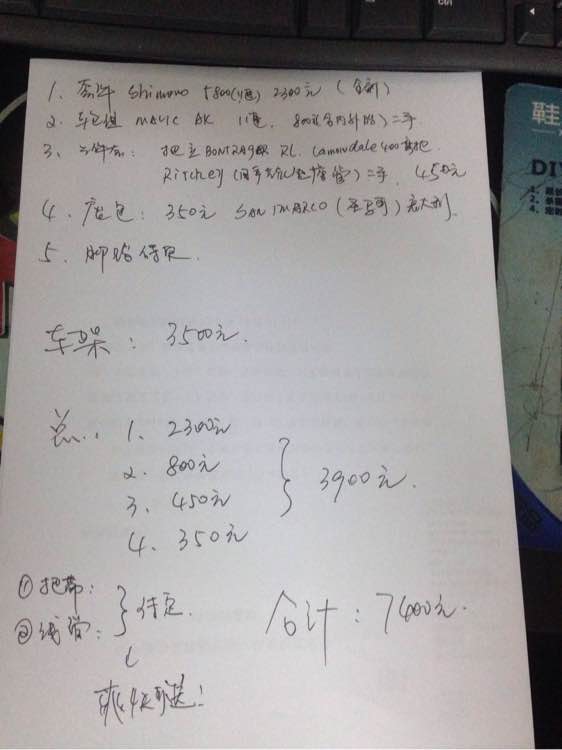 1、套件 Shimano 5800(11速) 2300元 (全新)
2、车轮组 MAVIC AK 11速, 800元(含内外胎)二手
3、三件套: 把立 BONTRAGER RL. Cannondale 400弯把
Ritchey (坐管)二手, 450元
4、座包: 350元 SAN MARCO (圣马可) 意大利.
5、脚踏待定.
车架: 3500元.
总.. 1、2300元
2、800元
3、450元
4、350元
3900元.
①把带:
②线管:
待定.
合计: 7400元.
爽快可送!
鞋
DIY